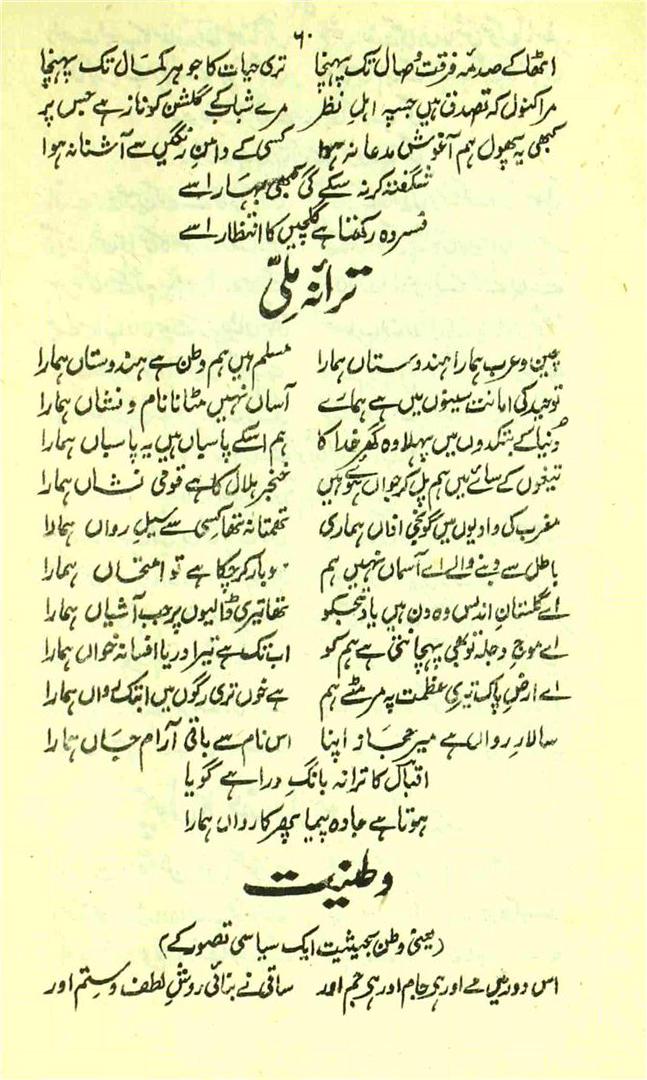 ۶۰
اٹھا کے صدمۂ فرقت وصال تک پہنچا تری حیات کا جوہر کمال تک پہنچا
مرا کنول کہ تصدق ہیں جسپہ اہلِ نظر مرے شباب کے گلشن کو ناز ہے جس پر
کبھی یہ پھول ہم آغوش مدعا نہ ہوا کسی کے دامنِ رنگیں سے آشنا نہ ہوا
شگفتہ کر نہ سکے گی کبھی بہار اسے
فسردہ رکھتا ہے گلچیں کا انتظار اسے
ترانۂ ملّی
چین و عرب ہمارا ہندوستاں ہمارا مسلم ہیں ہم وطن ہے ہندوستاں ہمارا
توحید کی امانت سینوں میں ہے ہمارے آساں نہیں مٹانا نام و نشاں ہمارا
دنیا کے بتکدوں میں پہلا وہ گھر خدا کا ہم اسکے پاسباں ہیں یہ پاسباں ہمارا
تیغوں کے سائے میں ہم پل کر جواں ہوئے ہیں خنجر ہلال کا ہے قومی نشاں ہمارا
مغرب کی وادیوں میں گونجی اذاں ہماری تھمتا نہ تھا کسی سے سیلِ رواں ہمارا
باطل سے دبنے والے اے آسماں نہیں ہم سو بار کر چکا ہے تو امتحاں ہمارا
اے گلستانِ اندلس وہ دن ہیں یاد تجھکو تھا تیری ڈالیوں پر جب آشیاں ہمارا
اے موجِ دجلہ تو بھی پہچانتی ہے ہم کو اب تک ہے تیرا دریا افسانہ خواں ہمارا
اے ارضِ پاک تیری عظمت پہ مر مٹے ہم ہے خوں تری رگوں میں ابتک رواں ہمارا
سالارِ رواں ہے میرِ حجاز اپنا اس نام سے باقی آرامِ جاں ہمارا
اقبال کا ترانہ بانگِ درا ہے گویا
ہوتا ہے جادہ پیما پھر کارواں ہمارا
وطنیت
(یعنی وطن بحیثیت ایک سیاسی تصور کے)
اس دور میں مے اور ہی جام اور ہی جم اور ساقی نے بنائی روشِ لطف و ستم اور